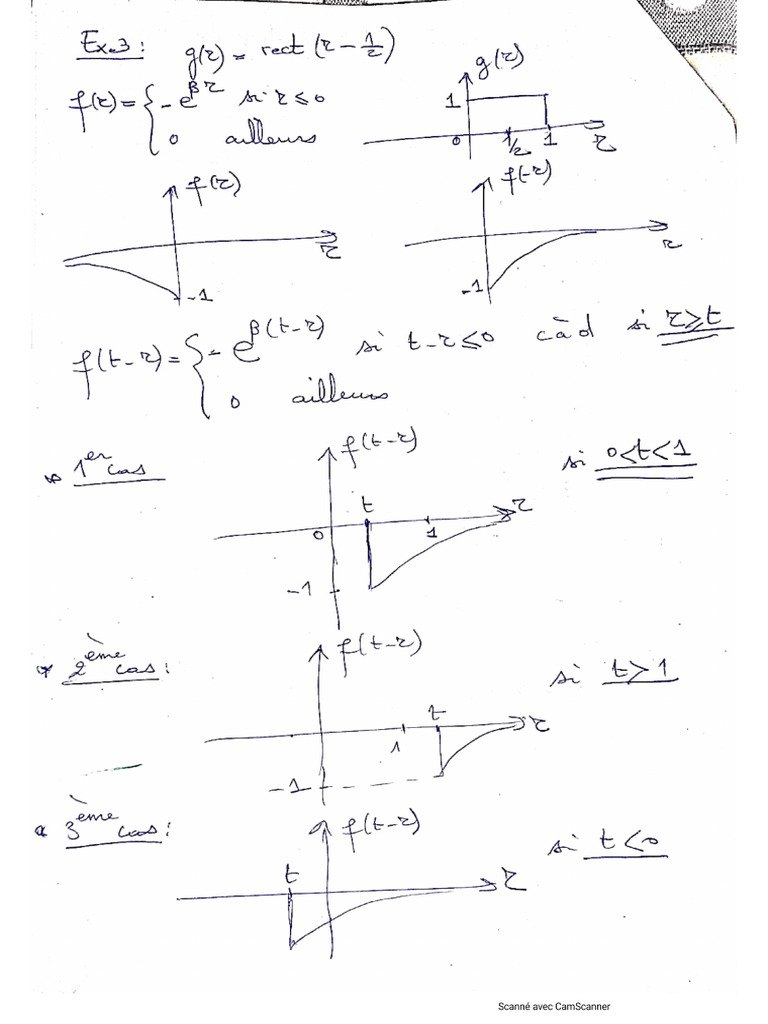 Ex.3 : g(τ) = rect (τ - 1/2)
f(τ) = { - e^{βτ} si τ ≤ 0
0 ailleurs
g(τ)
1
0 1/2 1 τ
f(τ)
τ
-1
f(-τ)
τ
-1
f(t-τ) = { - e^{β(t-τ)} si t-τ ≤ 0 càd si τ ≥ t
0 ailleurs
1er cas
f(t-τ)
si 0<t<1
t
τ
0 1
-1
2ème cas :
f(t-τ)
si t > 1
t
τ
1
-1
3ème cas :
f(t-τ)
si t < 0
t
τ
Scanné avec CamScanner